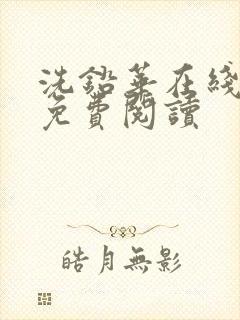 洗鉛華在綫
免費閱讀
皓月無影